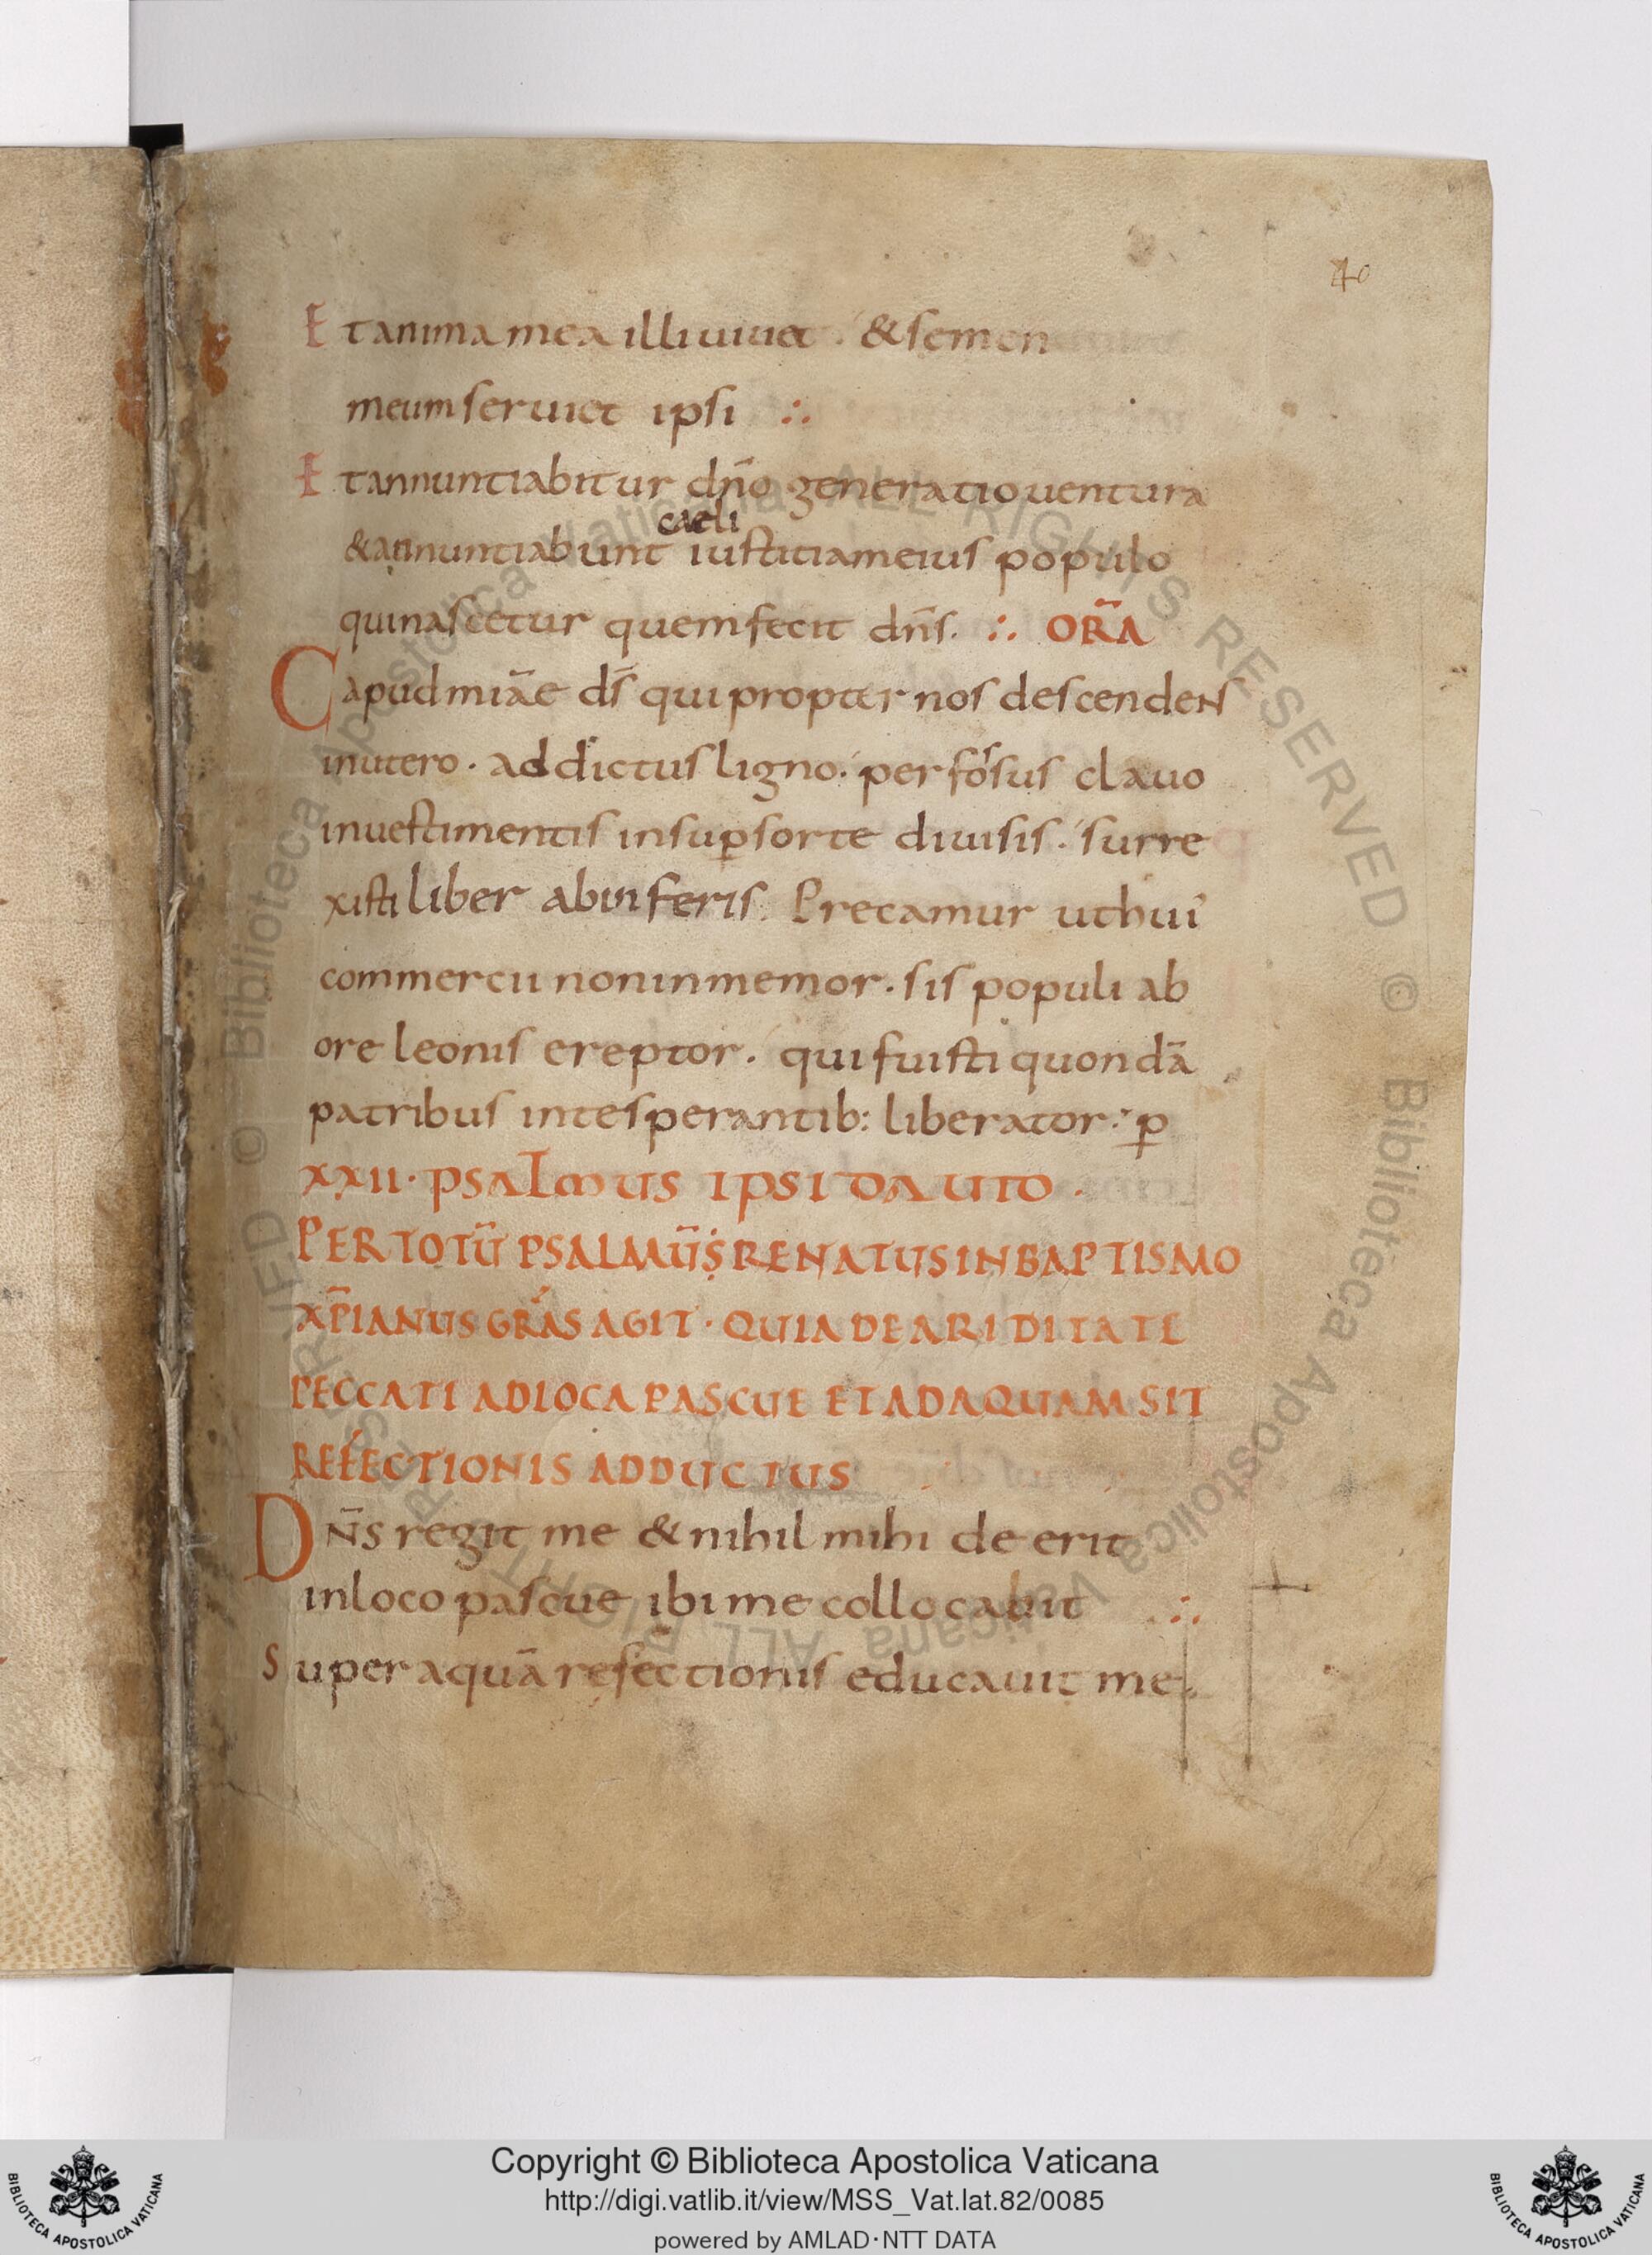 40
Et anima mea illi uiuet. & semen
meum seruiet ipsi ∴
Et annuntiabitur dn̄o generatio uentura
caeli
& annuntiabunt iustitiam eius populo
qui nascetur quem fecit dn̄s. ∴ ORĀ
Capud miāe ds̄ qui propter nos descendeN
inutero. addictus ligno. perfosus clauo
inuestimentis insup̲sorte diuisis. surre
xisti liber abinferis. Precamur uthui
commercii noninmemor. sis populi ab
ore leonis ereptor. qui fuisti quondā
patribus intesperantib: liberator. p̲
xxii. psalmus ipsi dauid.
PER TOTŪ PSALMŪS RENATUS IN BAPTISMO
XP̄IANUS GRAS AGIT. QUIA DE ARIDITATE
PECCATI AD LOCA PASCUE ET AD AQUAM SIT
REFECTIONIS ADDUCTUS
DN̄S regit me & nihil mihi deerit
inloco pascue ibi me collocabit ∴
Super aquā refectionis educauit me.
© Biblioteca Apostolica Vaticana ALL RIGHTS RESERVED © Biblioteca Apostolica Vaticana ALL RIGHTS RESERVED
Copyright © Biblioteca Apostolica Vaticana
http://digi.vatlib.it/view/MSS_Vat.lat.82/0085
powered by AMLAD·NTT DATA
BIBLIOTECA APOSTOLICA VATICANA
BIBLIOTECA APOSTOLICA VATICANA